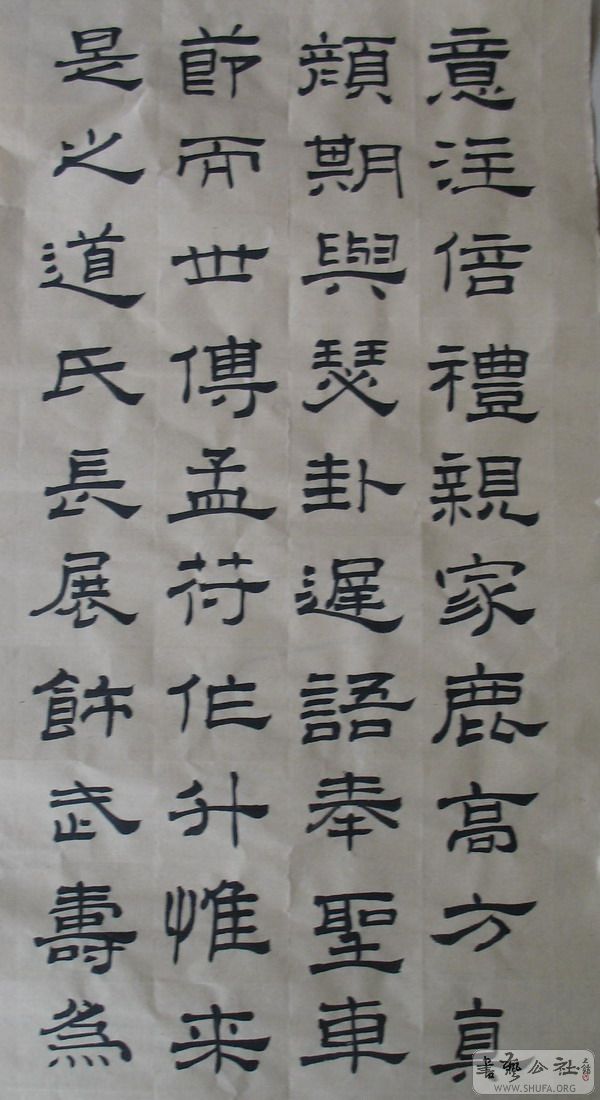 意注倍禮親家鹿高方真
顏期與瑟卦遲語奉聖車
節而世傅孟符作升惟来
是之道氏長展飾武壽為
書藝公社
WWW.SHUFA.ORG